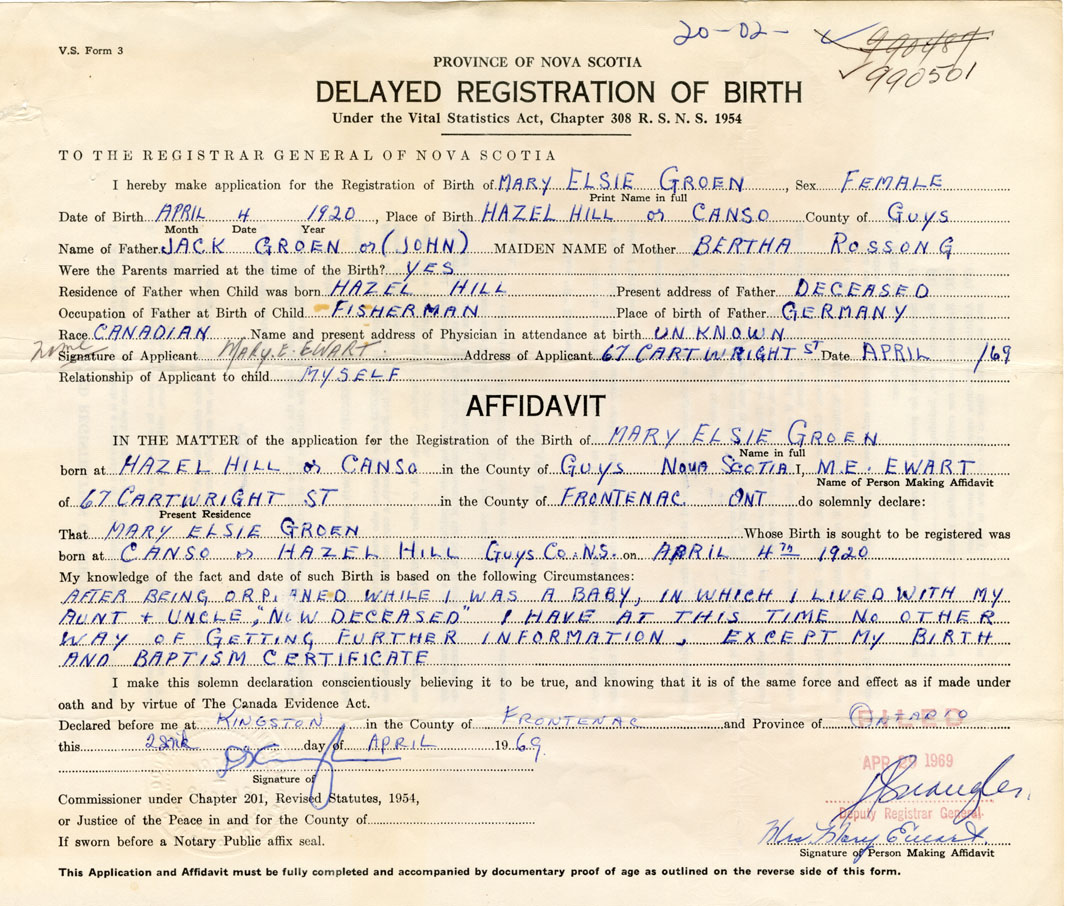 20-02- ✓ 990489
V.S. Form 3
✓ 990501
PROVINCE OF NOVA SCOTIA
DELAYED REGISTRATION OF BIRTH
Under the Vital Statistics Act, Chapter 308 R. S. N. S. 1954
TO THE REGISTRAR GENERAL OF NOVA SCOTIA
I hereby make application for the Registration of Birth of MARY ELSIE GROEN, Sex FEMALE
Print Name in full
Date of Birth APRIL 4 1920, Place of Birth HAZEL HILL or CANSO County of GUYS
Month Date Year
Name of Father JACK GROEN or (JOHN) MAIDEN NAME of Mother BERTHA ROSSONG
Were the Parents married at the time of the Birth? YES
Residence of Father when Child was born HAZEL HILL Present address of Father DECEASED
Occupation of Father at Birth of Child FISHERMAN Place of birth of Father GERMANY
Race CANADIAN Name and present address of Physician in attendance at birth UNKNOWN
Signature of Applicant MARY. E. EWART. Address of Applicant 67 CARTWRIGHT ST Date APRIL /69
Relationship of Applicant to child MYSELF
AFFIDAVIT
IN THE MATTER of the application for the Registration of the Birth of MARY ELSIE GROEN
Name in full
born at HAZEL HILL or CANSO in the County of GUYS NOVA SCOTIA I, M.E. EWART
Name of Person Making Affidavit
of 67 CARTWRIGHT ST in the County of FRONTENAC ONT do solemnly declare:
Present Residence
That MARY ELSIE GROEN Whose Birth is sought to be registered was
born at CANSO or HAZEL HILL GUYS CO. N.S. on APRIL 4TH 1920
My knowledge of the fact and date of such Birth is based on the following Circumstances:
AFTER BEING ORPHANED WHILE I WAS A BABY, IN WHICH I LIVED WITH MY
AUNT + UNCLE, "NOW DECEASED" I HAVE AT THIS TIME NO OTHER
WAY OF GETTING FURTHER INFORMATION, EXCEPT MY BIRTH
AND BAPTISM CERTIFICATE
I make this solemn declaration conscientiously believing it to be true, and knowing that it is of the same force and effect as if made under
oath and by virtue of The Canada Evidence Act.
Declared before me at KINGSTON, in the County of FRONTENAC and Province of ONTARIO
FILED
this day of APRIL 1969.
APR 1969
Signature of
Commissioner under Chapter 201, Revised Statutes, 1954,
or Justice of the Peace in and for the County of
Deputy Registrar General
If sworn before a Notary Public affix seal.
Mrs Mary Ewart.
Signature of Person Making Affidavit
This Application and Affidavit must be fully completed and accompanied by documentary proof of age as outlined on the reverse side of this form.